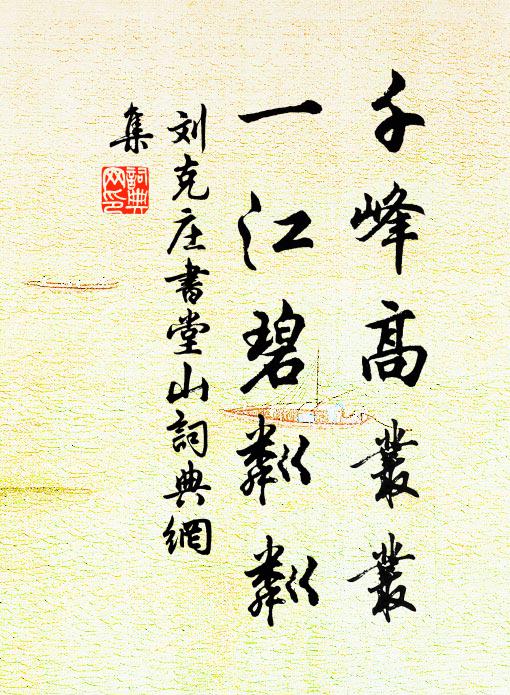 千峰高叢叢
一江碧粼粼
刘克庄書堂山詞典網
集
詞典
网印